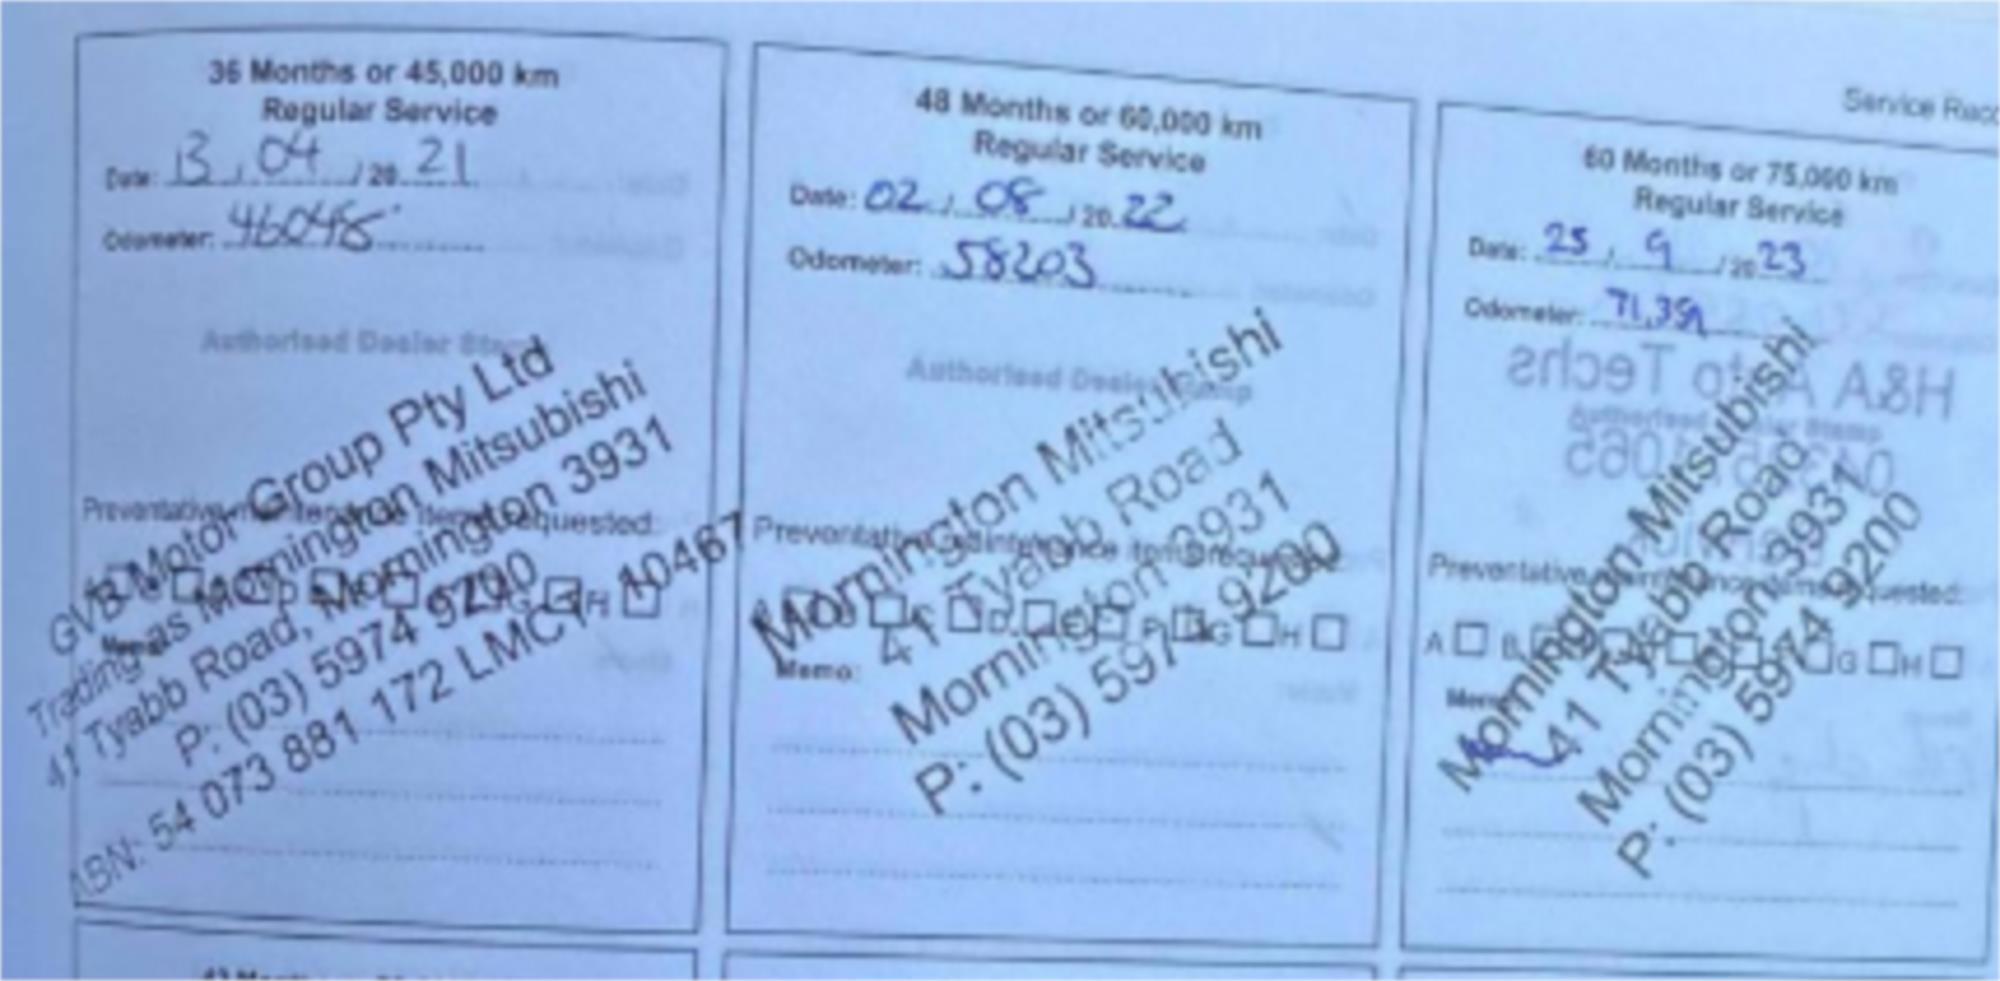 Service Reco
36 Months or 45,000 km
Regular Service
Date: 13 . 04 / 20 21
Odometer: 46048
Authorised Dealer Stamp
GVB Motor Group Pty Ltd
Trading as Mornington Mitsubishi
41 Tyabb Road, Mornington 3931
P: (03) 5974 9200
ABN: 54 073 881 172 LMCT 10467
Preventative maintenance items requested:
48 Months or 60,000 km
Regular Service
Date: 02 / 08 / 20 22
Odometer: 58203
Authorised Dealer Stamp
Mornington Mitsubishi
41 Tyabb Road
Mornington 3931
P: (03) 5974 9200
Preventative maintenance items requested:
A B C D E F G H
Memo:
60 Months or 75,000 km
Regular Service
Date: 25 / 9 / 20 23
Odometer: 71,359
H&A Auto Techs
Authorised Dealer Stamp
Mornington Mitsubishi
41 Tyabb Road
Mornington 3931
P: (03) 5974 9200
Preventative maintenance items requested:
A B G H
Memo